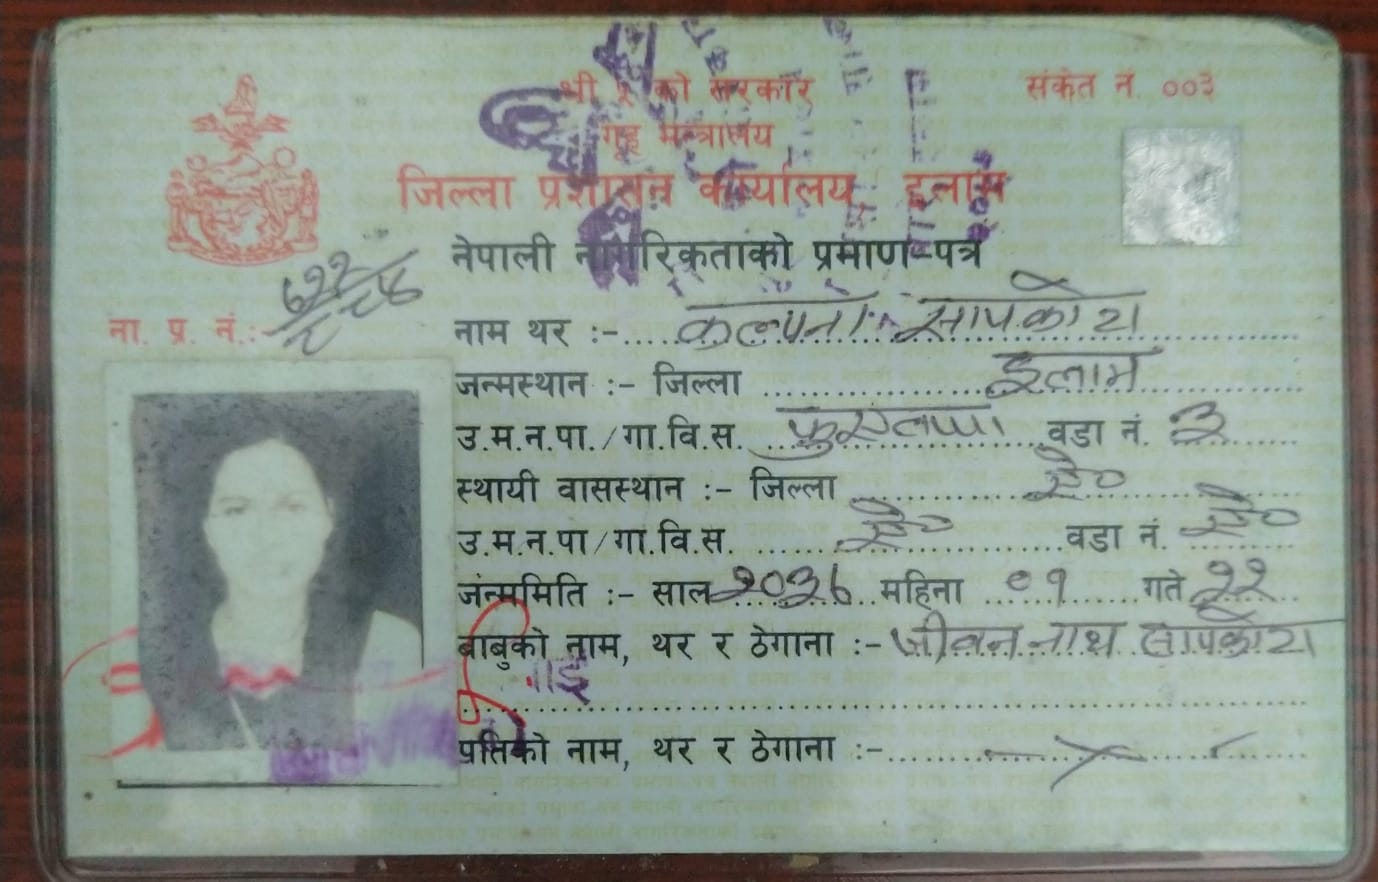 श्री ५ को सरकार
संकेत नं. ००३
गृह मन्त्रालय
जिल्ला प्रशासन कार्यालय, इलाम
नेपाली नागरिकताको प्रमाण-पत्र
ना. प्र. नं.:-
नाम थर :- कल्पना सापकोटा
जन्मस्थान :- जिल्ला इलाम
उ.म.न.पा./गा.वि.स. वडा नं. ३
स्थायी वासस्थान :- जिल्ला ऐ०
उ.म.न.पा/गा.वि.स. ऐ० वडा नं. ऐ०
जन्ममिति :- साल २०३६ महिना ०१ गते २२
बाबुको नाम, थर र ठेगाना :- जीवन नाथ सापकोटा
पतिको नाम, थर र ठेगाना :-